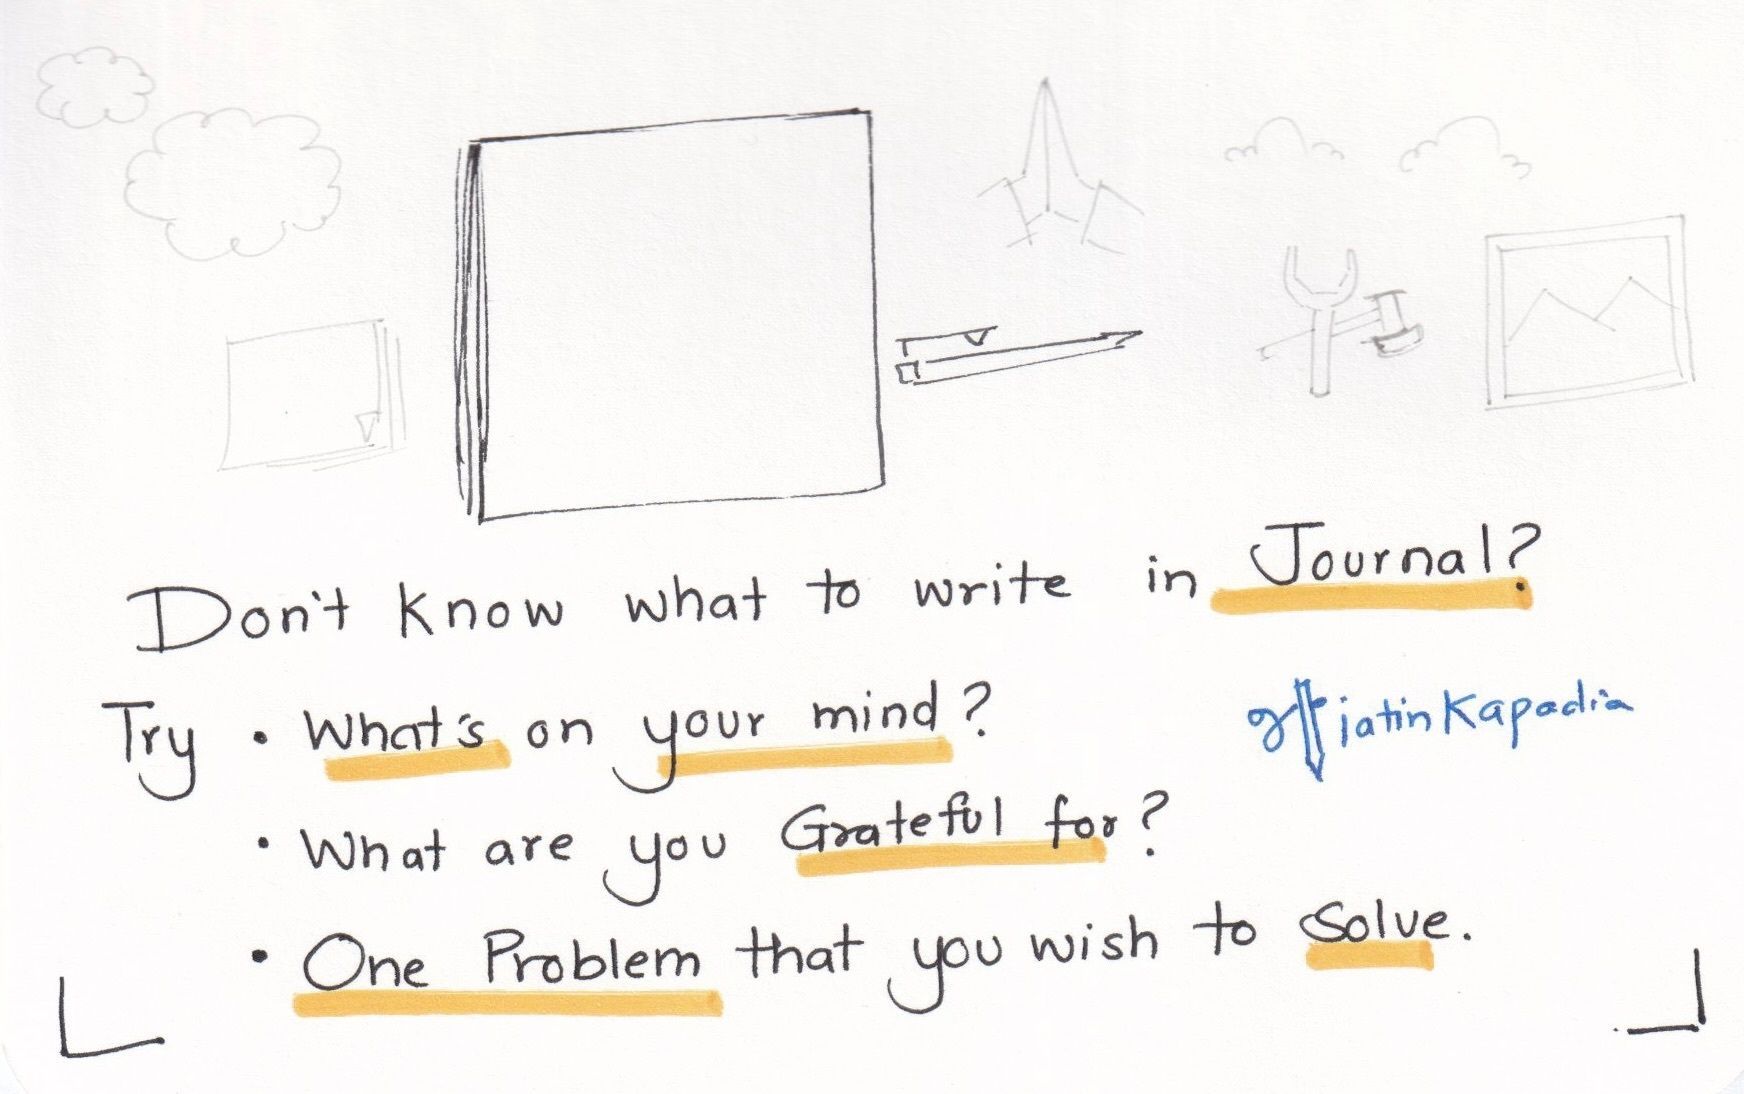 Don't know what to write in Journal?
Try • What's on your mind?
jatinKapadia
• What are you Grateful for?
• One Problem that you wish to Solve.